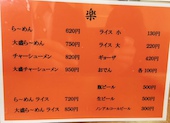 楽
らーめん 620円
大盛らーめん 750円
チャーシューメン 820円
大盛チャーシューメン 950円
らーめん ライス 720円
大盛らーめん ライス 850円
ライス 小 130円
ライス 大 220円
ギョーザ 420円
おでん 各100円
瓶ビール 500円
生ビール 500円
ノンアルコールビール 500円